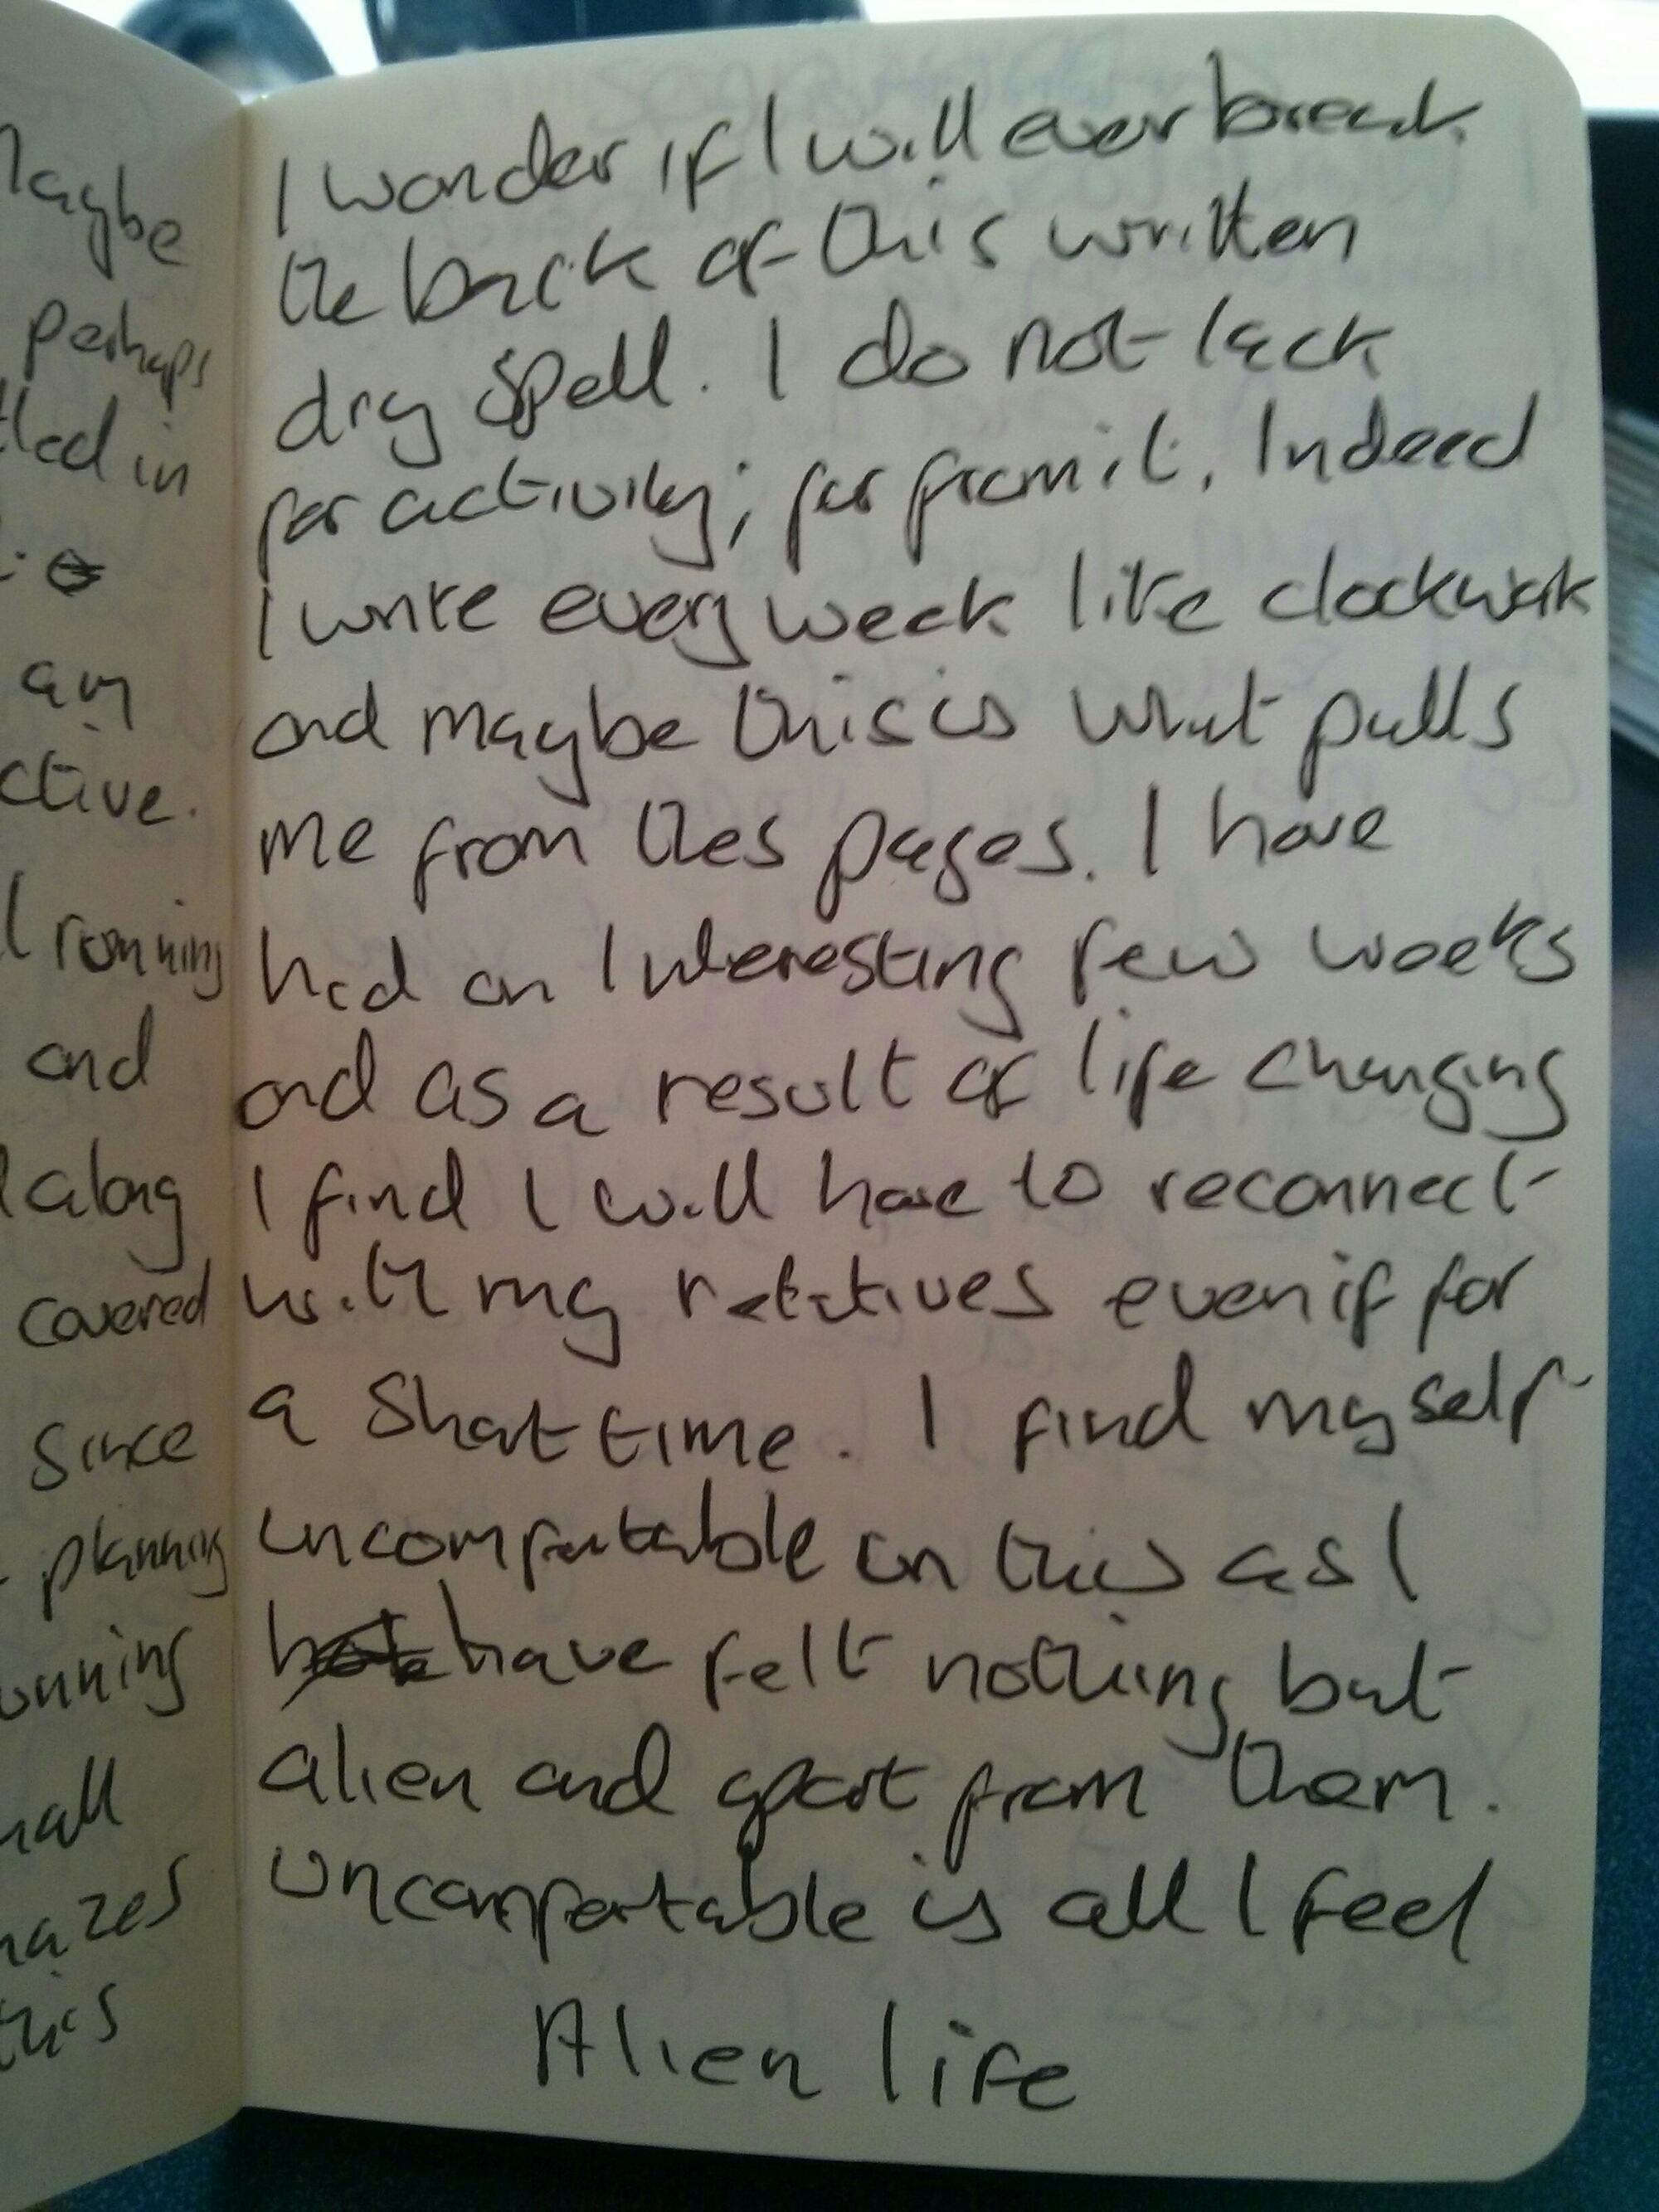 Maybe
perhaps
tled in
am
ctive.
running
and
along
covered
since
planning
unning
mall
mazes
this
I wonder if I will ever break
the back of this written
dry spell. I do not lack
for activity; far from it. Indeed
I write every week like clockwork
and maybe this is what pulls
me from thes pages. I have
had an Interesting few weeks
and as a result of life changing
I find I will have to reconnect
with my relatives even if for
a short time. I find myself
uncomfortable in this as I
have felt nothing but
alien and apart from them.
Uncomfortable is all I feel
Alien life